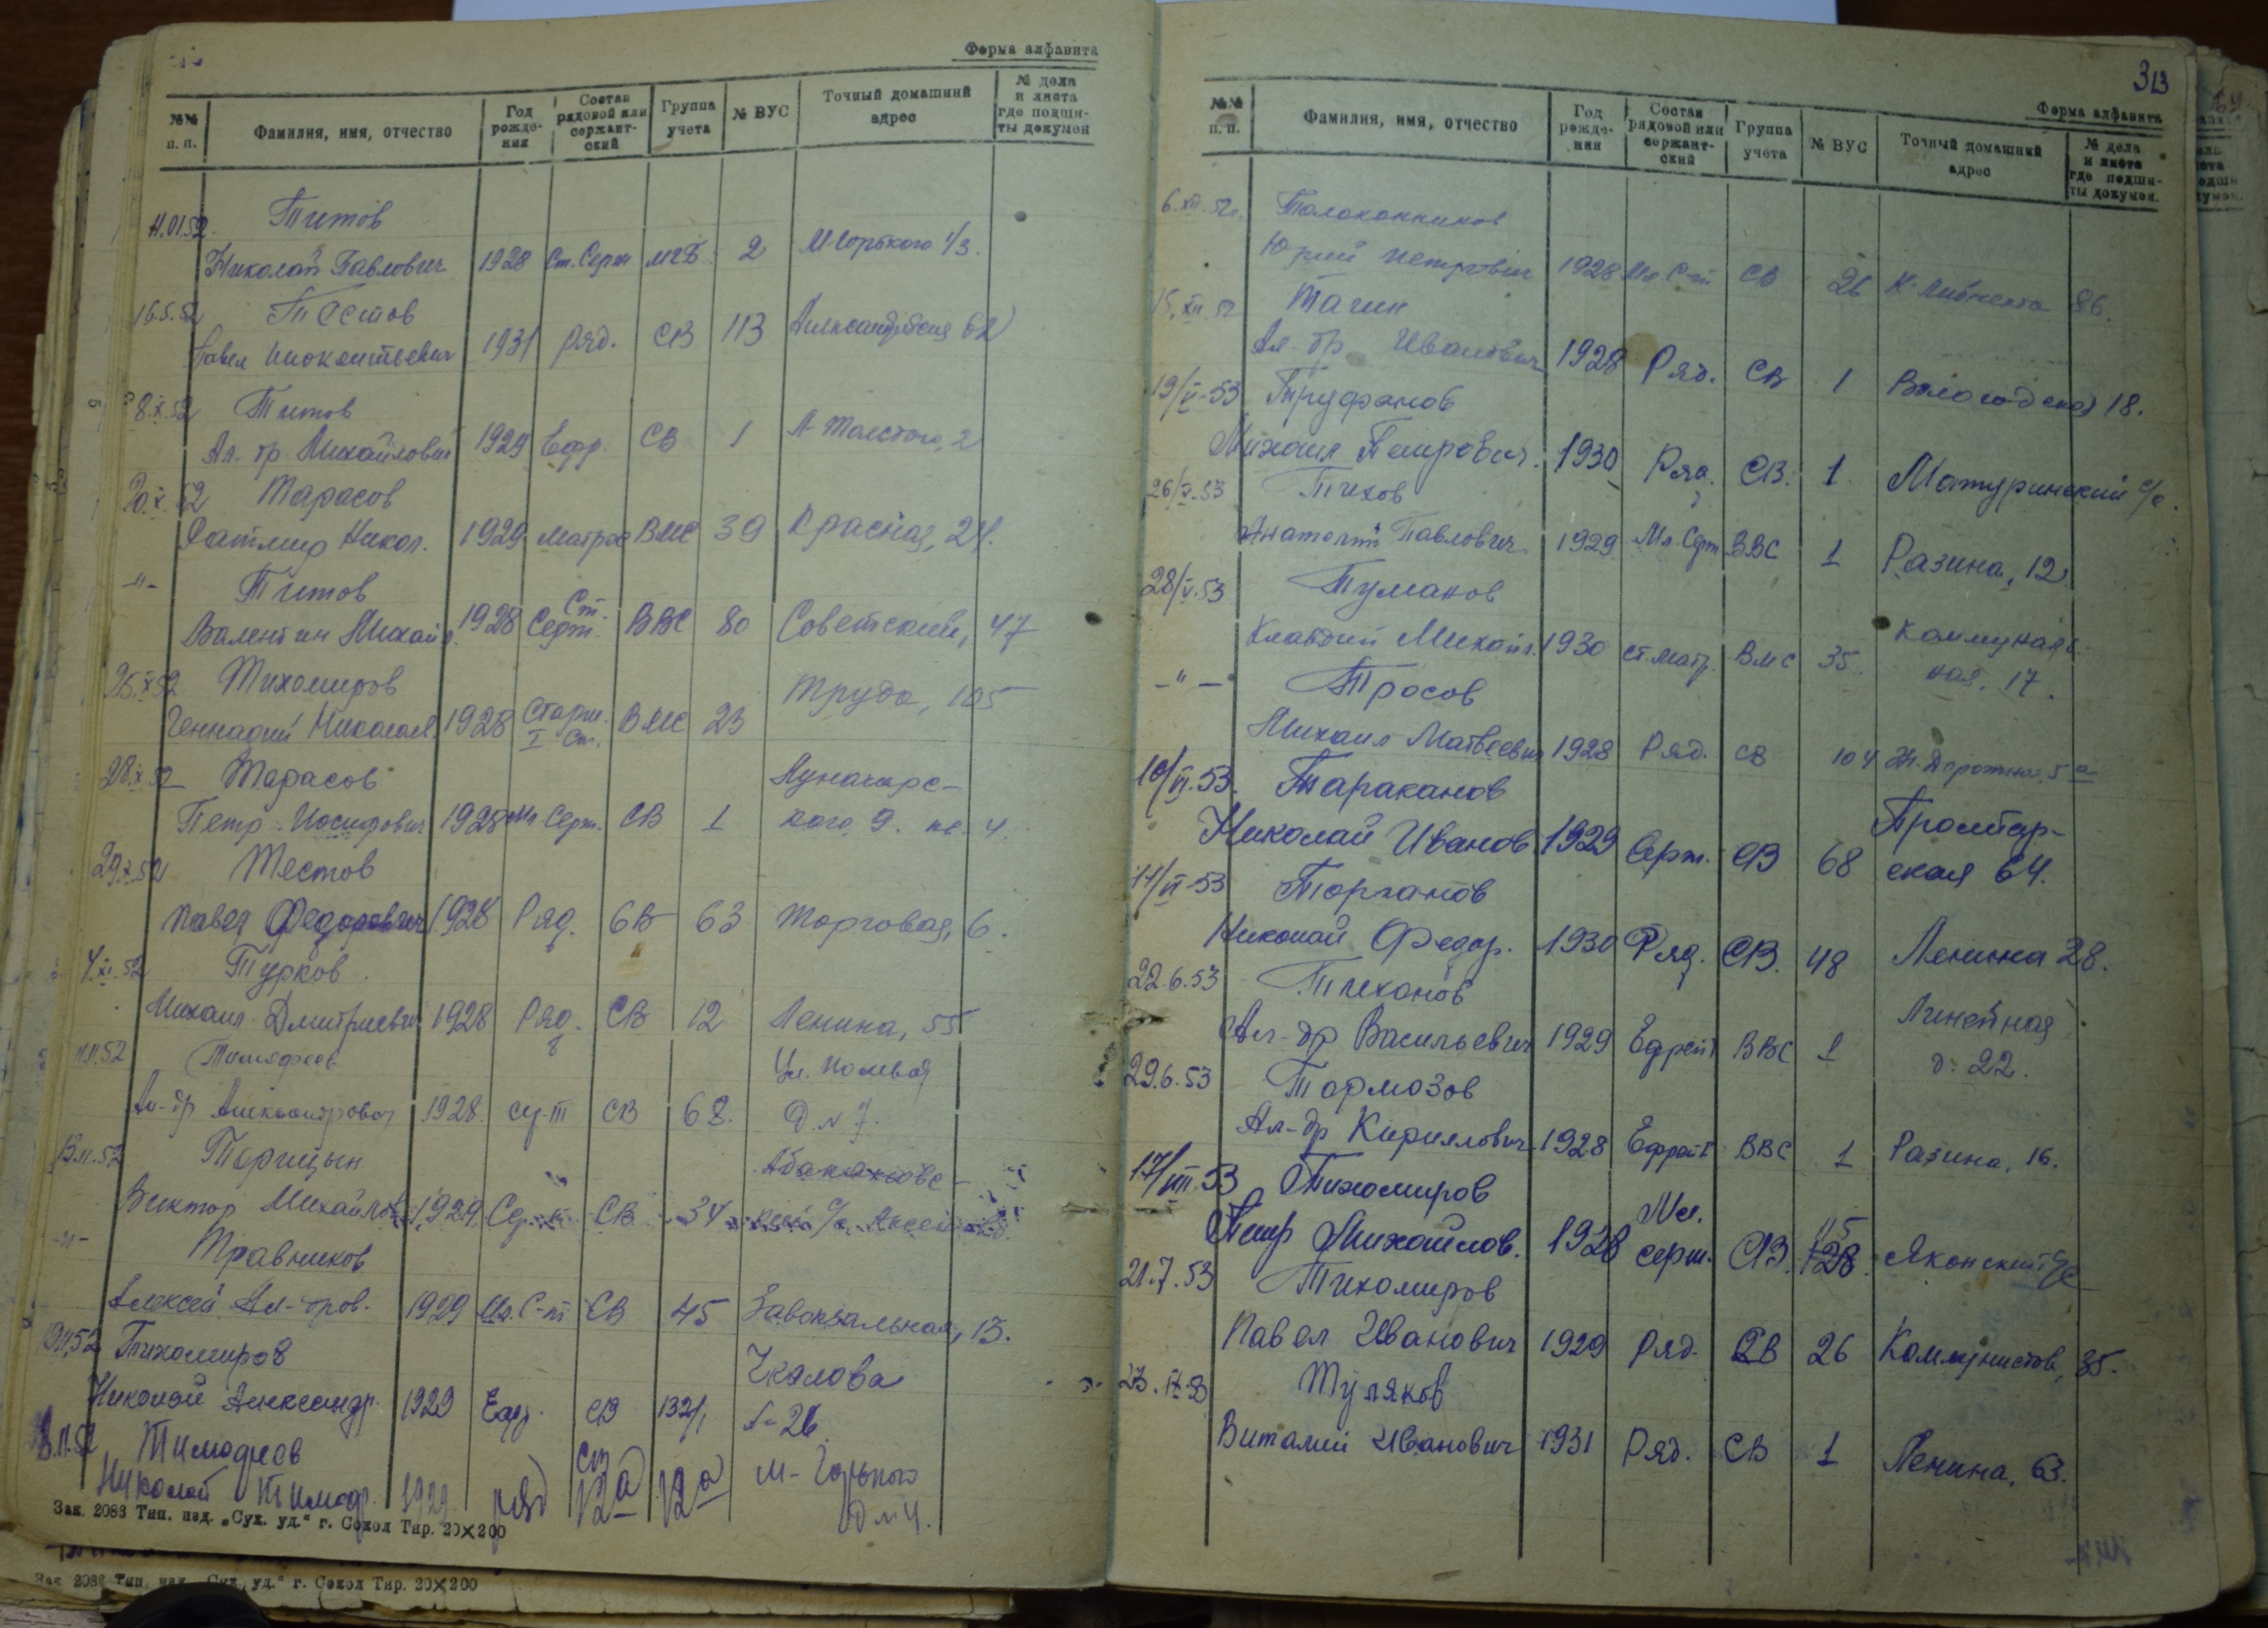 Форма алфавита
№№ п. п. Фамилия, имя, отчество Год рождения Состав рядовой или сержантский Группа учета № ВУС Точный домашний адрес № дела и листа где подшиты докумен
11.01.52. Титов
Николай Павлович 1928 Ст. Серж МГБ 2 М Горького 1/3.
16.5.52 Тестов
Павел Инокентьевич 1931 Ряд. СВ 113 62
8.X.52 Титов
Ал-др Михайлович 1929 Ефр. СВ 1 Л-Толстого, 2
20.X.52 Тарасов
Ратмир Никол. 1929 Матрос ВМС 39 Красная, 24.
-"- Титов
Валентин Михайл. 1928 Ст. Серж. ВВС 80 Советский, 47
25.X.52 Тихомиров
Геннадий Николаев. 1928 Старш. I Ст. ВМС 23 Труда, 105
28.X.52 Тарасов
Петр Иосифович 1928 Мл Серж. СВ 1 Луначарского, 9. кв. 4.
29.X.52 Тестов
Павел Федорович 1928 Ряд. СВ 63 Торговая, 6.
4.XI.52 Турков
Михаил Дмитриевич 1928 Ряд. СВ 12 Ленина, 55
11.11.52 Тимофеев
Ал-др Александрович 1928. СВ 68. Ул. Полевая Д. № 7.
13.11.52 Торицын
Виктор Михайлов. 1929 СВ 34 с/с
-"- Травников
Алексей Ал-дров. 1929 Мл. С-т СВ 45 Завокзальная, 13.
Тихомиров
Николай Александр. 1929 Ефр. СВ 132/1 Чкалова 26
Тимофеев
Николай Тимоф. 1929 ряд СВ 12а М-Горького
Зак. 2083 Тип. изд. „Сух. уд." г. Сокол Тир. 20×200
Зак. 2083 Тип. изд. „Сух. уд." г. Сокол Тир. 20×200
313
Форма алфавита
№№ п. п. Фамилия, имя, отчество Год рождения Состав рядовой или сержантский Группа учета № ВУС Точный домашний адрес № дела и листа где подшиты докумен.
6.XII.52г. Толоконников
Юрий Петрович 1928 Мл С-т СВ 26 К. Либкнехта 86.
15.XII.52 Тагин
Ал-др Иванович 1928 Ряд. СВ 1 Вологодская 18.
19/V-53 Труфанов
Михаил Петрович. 1930 Ряд. СВ. 1. Матуринский с/с.
26/V.53 Тихов
Анатолий Павлович 1929 Мл. Серж ВВС 1 Разина, 12
28/V.53 Тумаков
Клавдий Михайл. 1930 ст. матр. ВМС 35. Коммунальная, 17.
-"- Тросов
Михаил Матвеевич 1928 Ряд. СВ 104 Жл. Дорожная. 5а
10/VI.53. Тараканов
Николай Иванов. 1929 Серж. СВ 68 Пролетарская 64.
11/VI-53 Торганов
Николай Федор. 1930 Ряд. СВ. 48 Ленина 28.
22.6.53 Тиханов
Ал-др Васильевич 1929 Ефрейт ВВС 1 Линейная д. 22.
29.6.53 Тормозов
Ал-др Кириллович 1928 Ефрейт ВВС 1 Разина, 16.
17/VII.53 Тихомиров
Петр Михайлов. 1928 Мл. серж. СВ. 115 128 с/с
21.7.53 Тихомиров
Павел Иванович 1929 Ряд. СВ 26 Коммунистов, 35.
Туляков
Виталий Иванович 1931 Ряд. СВ 1 Ленина, 63.